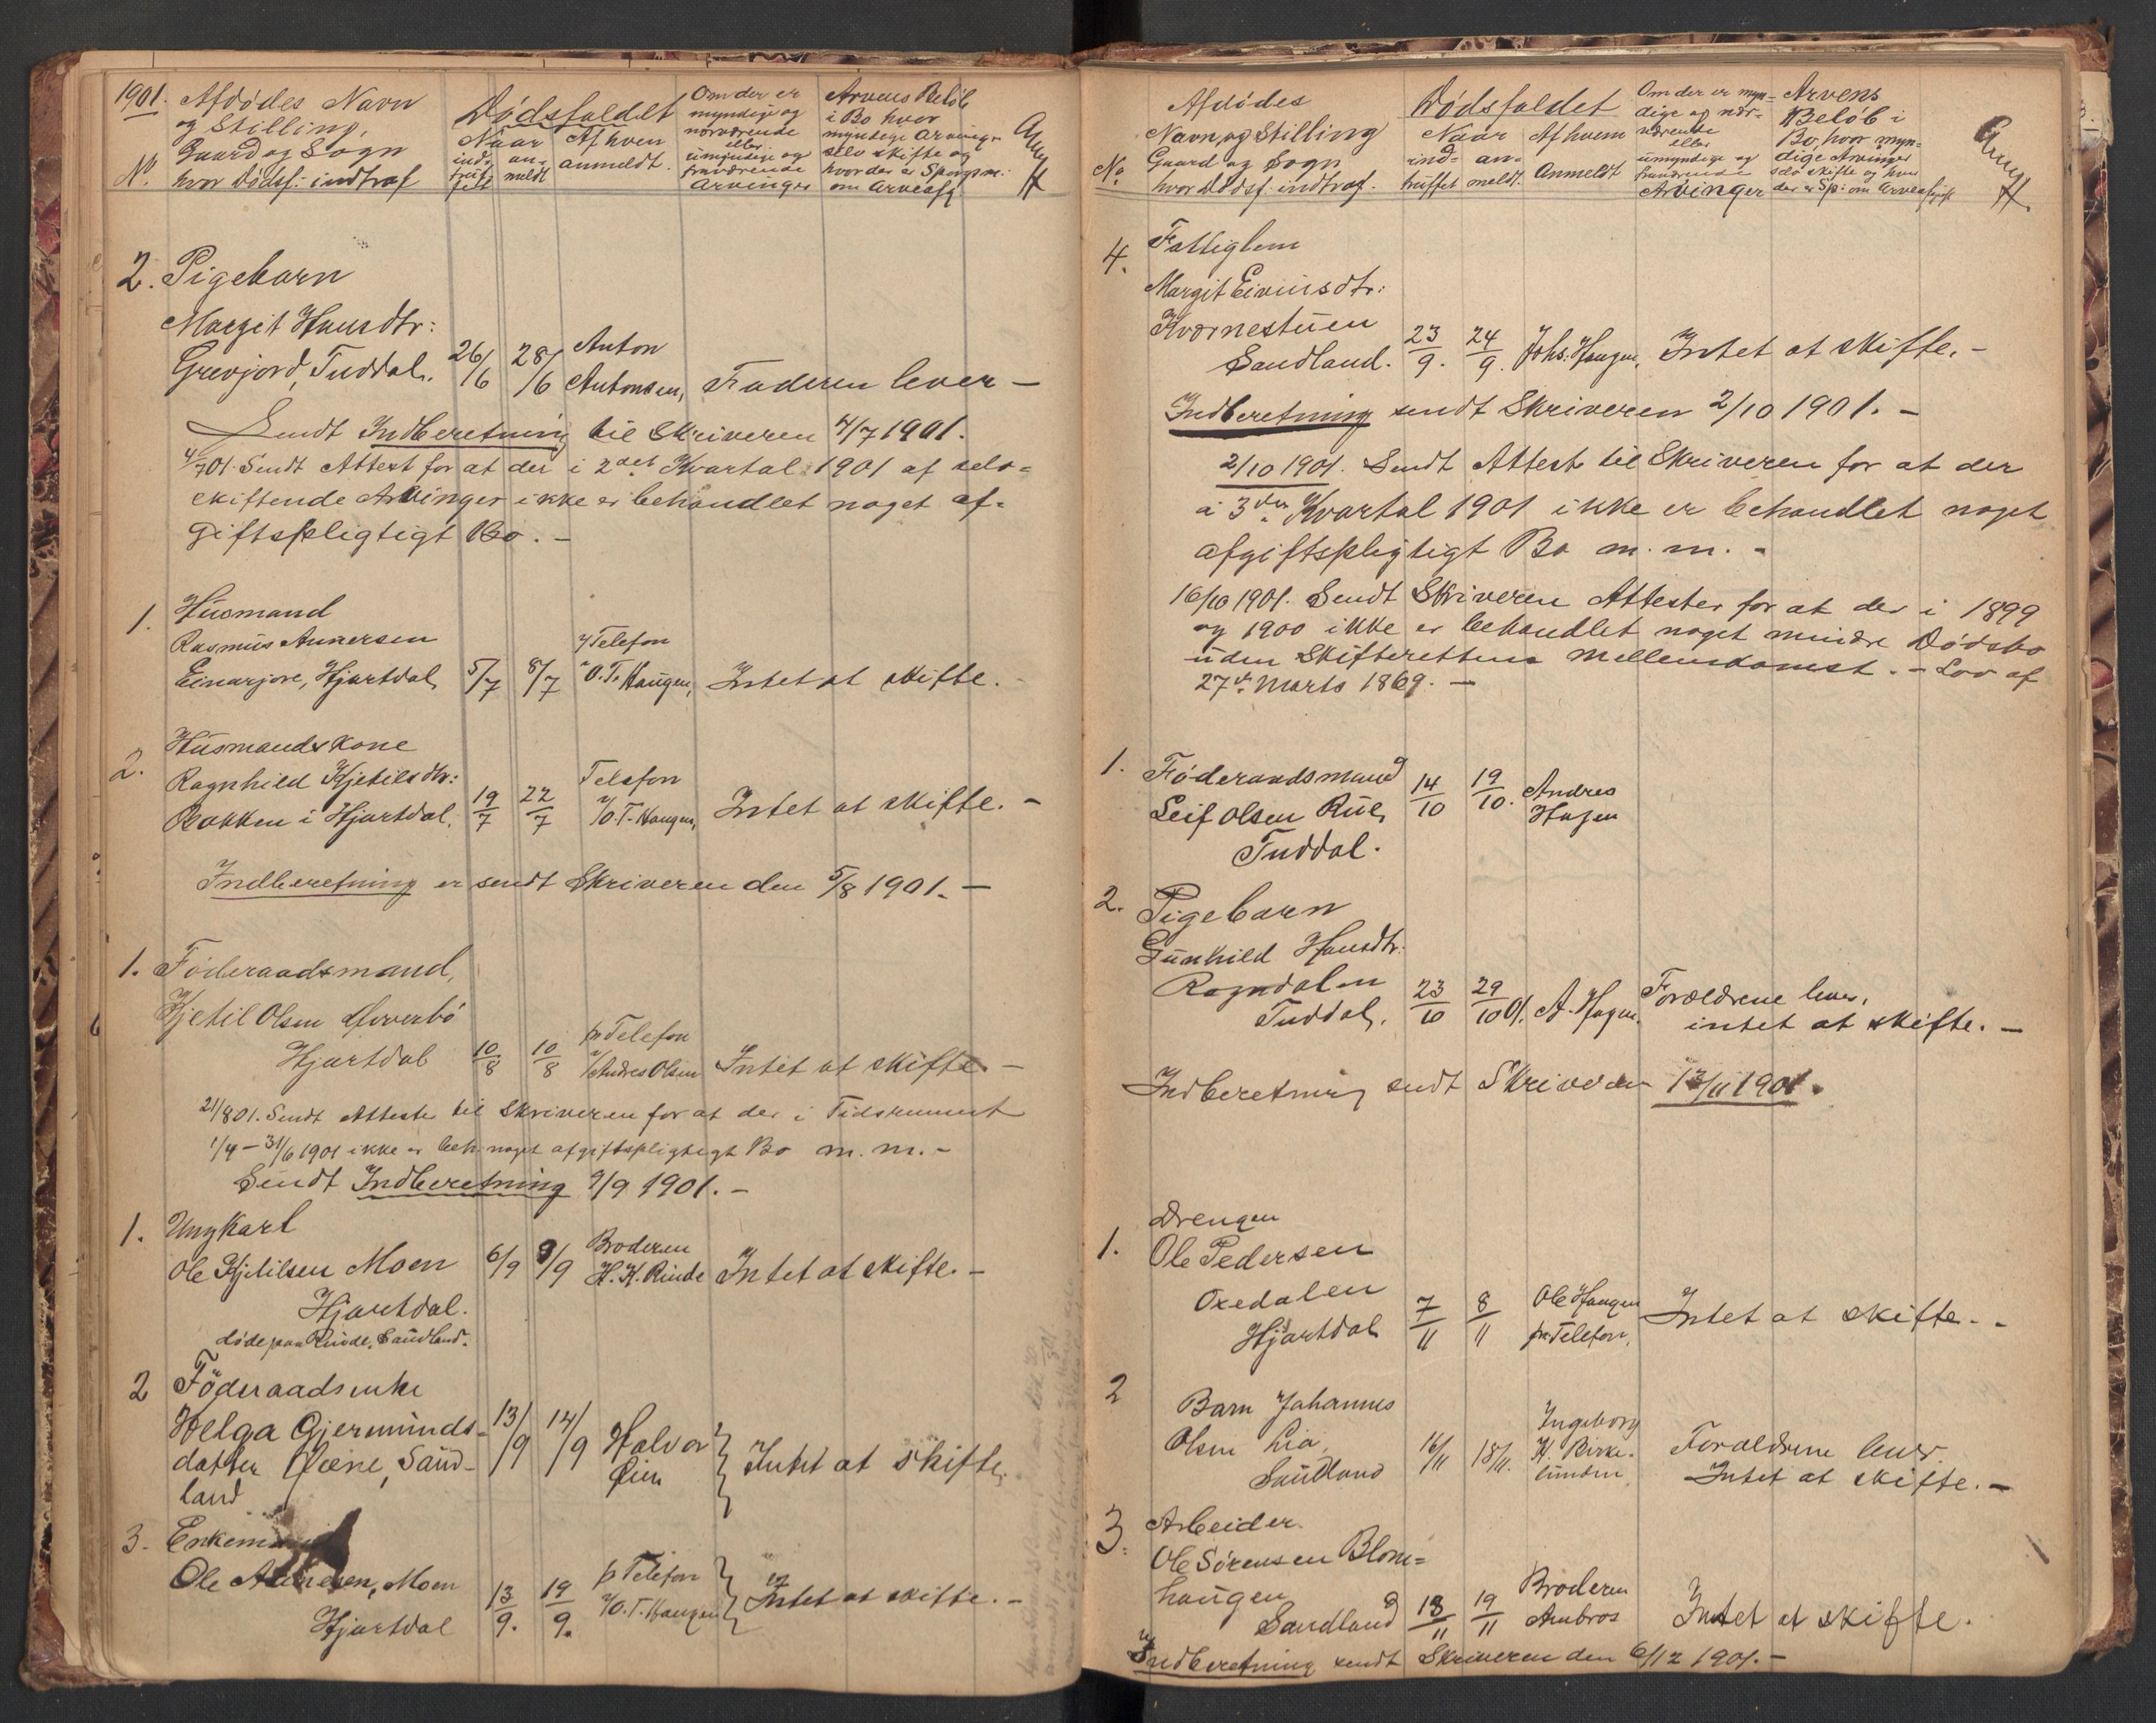 1901. Afdödes Navn
og Stilling,
Gaard og Sogn
No. hvor Dödsf: indtraf
Dödsfaldet
Naar Af hvem
ind- an-
truf- meldt anmeldt.
fet
Om der er
myndige og
nærværende
eller
umyndige og
fraværende
Arvinger
Arvens Belöb
i Bo hvor
myndige Arvinger
selv skifte og
hvor der er Spørgsm:
om Arveafg.
2. Pigebarn
Margit Hansdtr:
Grevjord, Tuddal. 26/6 28/6 Anton
Antonsen, Faderen lever —
Sendt Indberetning til Skriveren 4/7 1901.
4/7 01. Sendt Attest for at der i 2det Kvartal 1901 af selv=
skiftende Arvinger ikke er behandlet noget af=
giftspligtigt Bo. —
1. Husmand
Rasmus Aunersen
Einarjore, Hjartdal 5/7 8/7 Telefon
O. T. Haugen, Intet at skifte.
2. Husmandskone
Ragnhild Kjetilsdtr:
Bakken i Hjartdal. 19/7 22/7 Telefon
v/O. T. Haugen, Intet at skifte. —
Indberetning er sendt Skriveren den 5/8 1901. —
1. Föderaadsmand,
Kjetil Olsen
Hjartdal 10/8 10/8 pr Telefon
v/Andres Olsen Intet at skifte —
21/8 01. Sendt Attest til Skriveren for at der i Tidsrummet
1/4 – 31/6 1901 ikke er beh. noget afgiftspligtigt Bo m. m. –
Sendt Indberetning 9/9 1901. —
1. Ungkarl
Ole Kjetilsen Moen 6/9 9/9 Broderen
H. K. Rinde Intet at skifte. —
Hjartdal.
döde paa Rinde, Sauland.
2 Föderaadsenke
Helga Gjermunds-
datter Øiene, Saud-
land 13/9 14/9 Halvor
Øien Intet at skifte.
3. Enkem
Ole Aunesen, Moen
Hjartdal 13/9. 19/9. pr Telefon
v/O. T. Haugen Intet at skifte. —
Afdödes
Navn og Stilling
No. Gaard og Sogn
hvor Dödsf. indtraf.
Dödsfaldet
Naar Af hvem
ind- an-
truffet meldt. Anmeldt
Om der er myn=
dige og nær-
værende
eller
umyndige og
fraværende
Arvinger
Arvens
Belöb i
Bo, hvor myn-
dige Arvinger
selv skifte og hvor
der er Sp: om Arveafgift
4. Fattiglem
Margit Eivinsdtr:
Kværnestuen
Sandland. 23/9. 24/9. Johs. Haugen, Intet at skifte. —
Indberetning sendt Skriveren 2/10 1901. —
2/10 1901. Sendt Attest til Skriveren for at der
i 3die Kvartal 1901 ikke er behandlet noget
afgiftspligtigt Bo m. m. -
16/10 1901. Sendt Skriveren Attester for at der i 1899
og 1900 ikke er behandlet noget mindre Dödsbo
uden Skifterettens Mellemkomst. – Lov af
27de Marts 1869. —
1. Föderaadsmand
Leif Olsen Rue, 14/10 19/10. Andres
Hagen
Tuddal.
2. Pigebarn
Gunhild Hansdtr.
Rogndalen
Tuddal. 23/10 29/10 01. A. Hagen. Forældrene lever,
intet at skifte. —
Indberetning sendt Skriveren 12/11 1901.
Drengen
1. Ole Pedersen
Oxedalen
Hjartdal 7/11 8/11 Ole Haugen
pr Telefon, Intet at skifte. -
2 Barn Johannes
Olsen Lia,
Saudland 16/11 18/11. Ingeborg
H. Birke-
lunden, Forældrene lever.
Intet at skifte. —
3. Arbeider
Ole Sørensen Blom=
haugen
Sandland 18/11 19/11 Broderen
Ambros Intet at skifte.
Indberetning sendt Skriveren den 6/12 1901. —